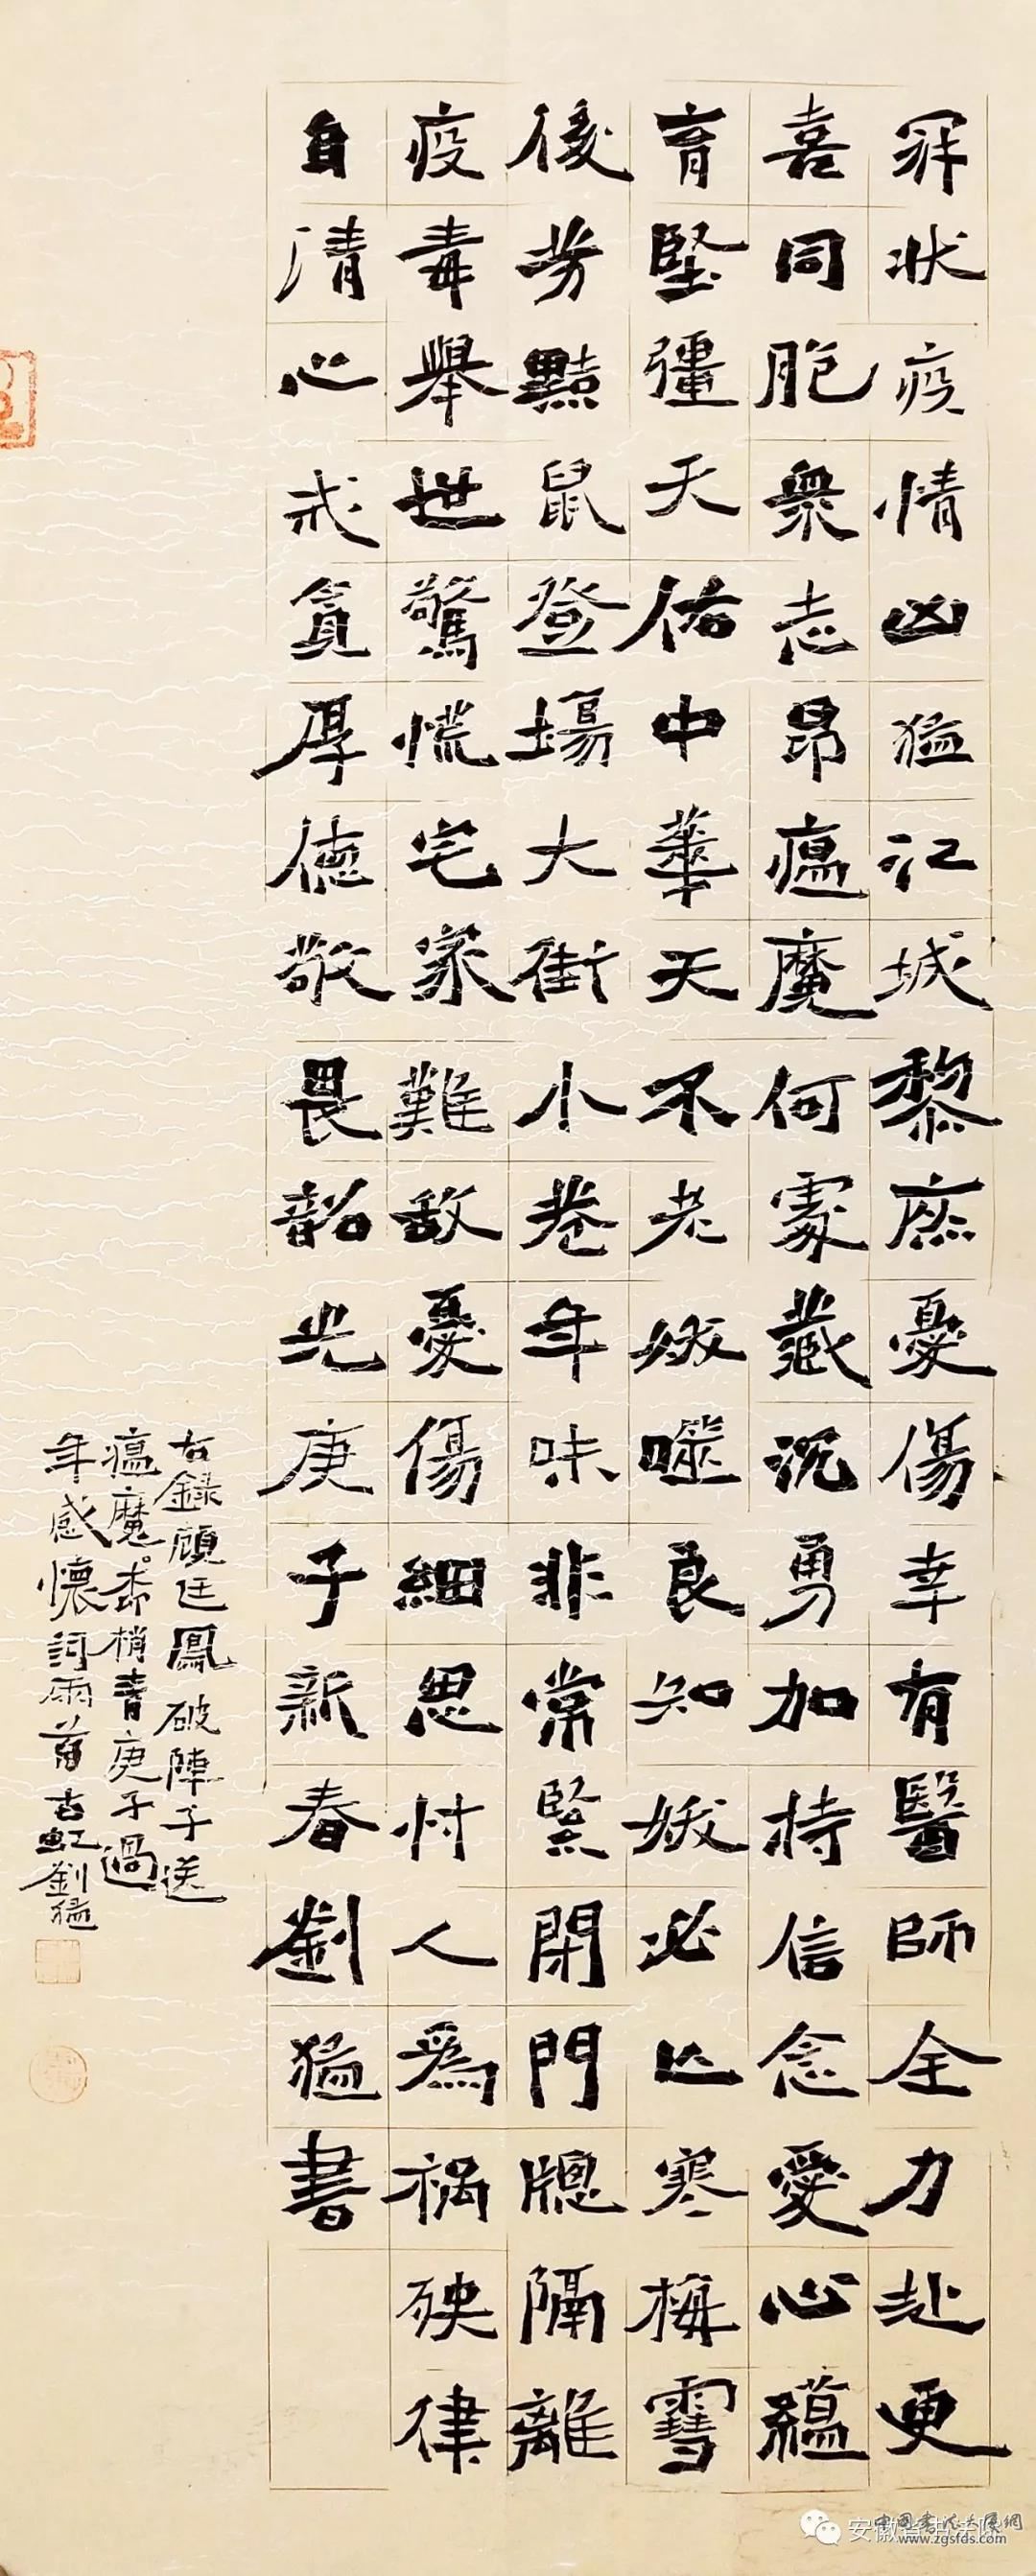 罕状疫情凶猛江城黎庶憂傷幸有醫師全力赴更
喜同胞衆志昂瘟魔何處藏沉勇加持信念愛心蘊
育堅彊天佑中華天不老娥噬良知娥必亡寒梅雪
後芳黠鼠登場大街小巷年味非常緊閉門牕隔離
疫毒舉世驚慌宅家難敵憂傷細思忖人為禍殃律
自清心戒貪厚德敬畏韶光庚子新春劉猛書
右錄顧廷鳳破陣子送
瘟魔柰梢青庚子過
年感懷詞兩首古虹劉猛
安徽省书法院
中国书法大展網
www.zgsfds.com